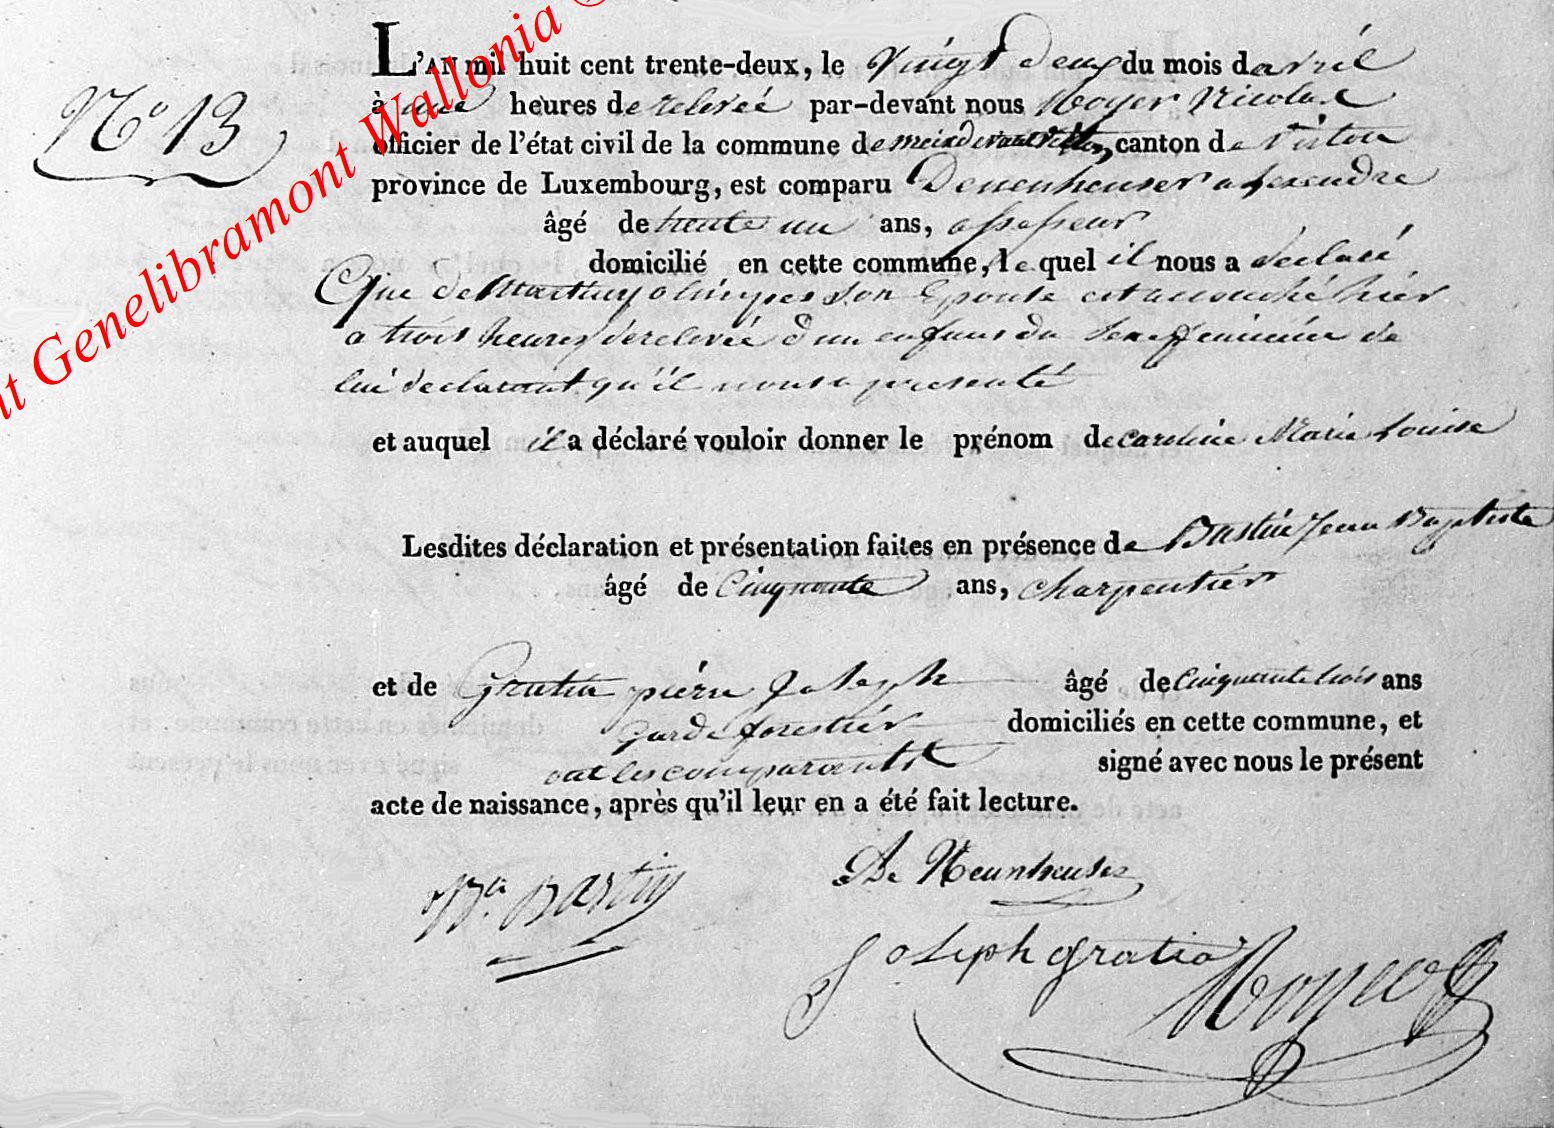 nt Genelibramont Wallonia ©
N° 13
L'AN mil huit cent trente-deux, le Vingt deux du mois d avril
à une heures de relevée par-devant nous Noyer Nicolas
officier de l'état civil de la commune de meix devant virton, canton de virton
province de Luxembourg, est comparu Deneunheuser alexendre
âgé de trente un ans, assesseur
domicilié en cette commune, le quel il nous a déclaré
Que de Martiny olimpes son Epouse est accouché hier
a trois heures de relevée d'un enfans du sexe feminin de
lui declarant qu'il nous a presenté
et auquel il a déclaré vouloir donner le prénom de caroline Marie Louise
Lesdites déclaration et présentation faites en présence de Bastin Jean Baptiste
âgé de Cinquante ans, charpentier
et de Gratia pièrre Joseph âgé de Cinquante trois ans
Garde forestier domiciliés en cette commune, et
ont les comparants signé avec nous le présent
acte de naissance, après qu'il leur en a été fait lecture.
Bastin
De Neunheuser
Joseph gratia
Noyer